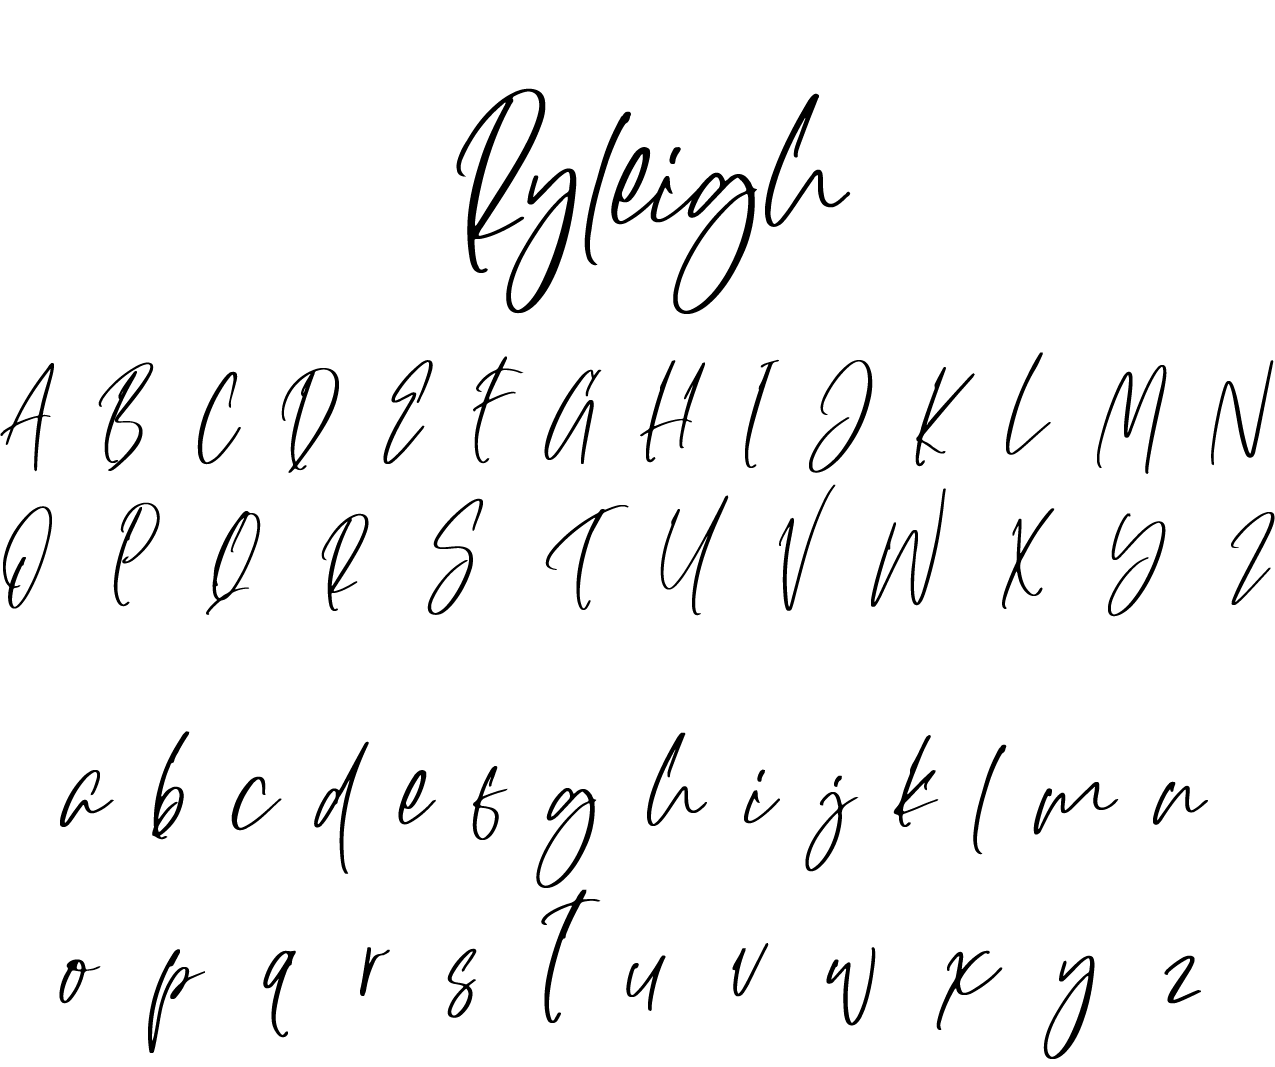 Ryleigh
A B C D E F G H I J K L M N
O P Q R S T U V W X Y Z
a b c d e f g h i j k l m n
o p q r s t u v w x y z